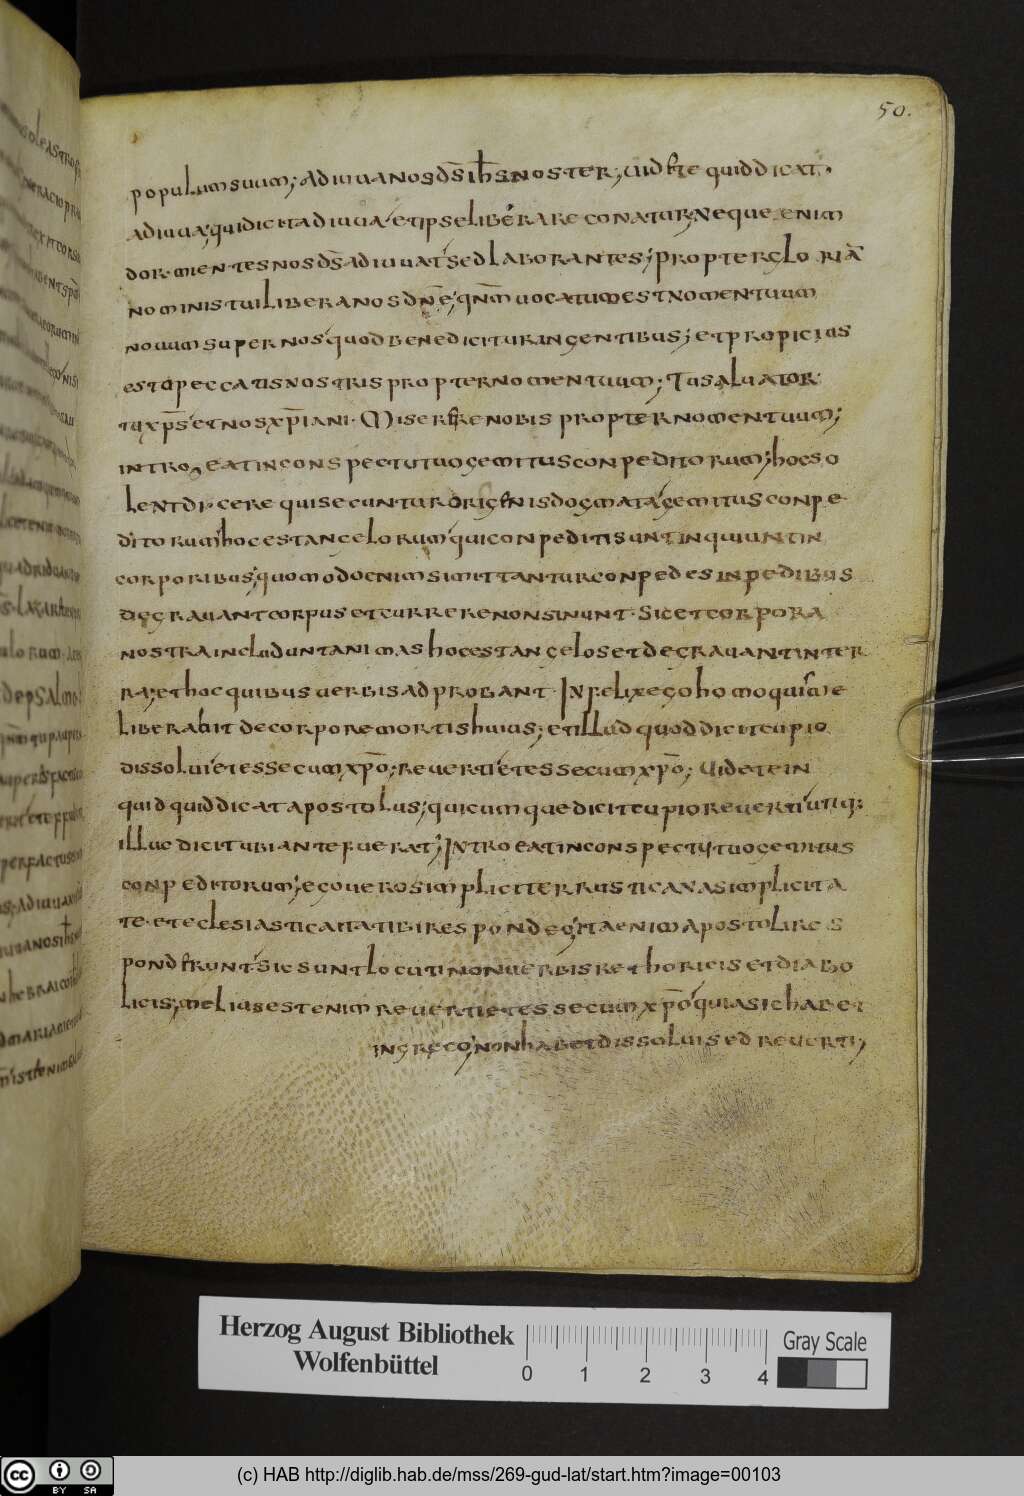 50.
populumsuum; Adiuuanosd̄s ih̄s noster; Uidete quiddicat.
adiuua; quidicitadiuua; etipseliberare conatur; Neque enim
dormientes nos d̄s adiuuat; sed laborantes; propter gloriā
nominis tui libera nos dn̄e; qn̄m uocatum est nomen tuum
nouum super nos; quod benedicitur in gentibus; et propicius
esto peccatis nostris propter nomen tuum; Tu saluator
tu xp̄s et nos xp̄iani. Miserere nobis propter nomen tuum;
introeat in conspectu tuo gemitus conpeditorum; hoc so
lent dicere qui secuntur origenis dogmata; gemitus conpe
ditorum; hoc est angelorum; qui conpediti sunt inquiunt in
corporibus; quomodo enim si mittantur conpedes in pedibus
degrauant corpus et currere non sinunt. Sic et corpora
nostra includunt animas hoc est angelos et degrauant in ter
ra; et hoc quibus uerbis adprobant. Infelix ego homo quis me
liberabit de corpore mortis huius; et illud quod dicit cupio
dissolui et esse cum xp̄o; reuerti et esse cum xp̄o; Uidete in
quid quid dicat apostolus; quicumque dicit cupio reuerti utiq;
illuc dicit ubi ante fuerat; Introeat in conspectu tuo gemitus
conpeditorum; ego uero simpliciter rusticana simplicita
te. et eclesiastica ita tibi respondeo; ita enim apostoli res
ponderunt sic sunt locuti non uerbis rethoricis et diabo
licis; melius est enim reuerti et esse cum xp̄o quia sic habet
in greco; non habet dissolui sed reuerti;
Herzog August Bibliothek
Wolfenbüttel
0 1 2 3 4
Gray Scale
cc BY SA
(c) HAB http://diglib.hab.de/mss/269-gud-lat/start.htm?image=00103